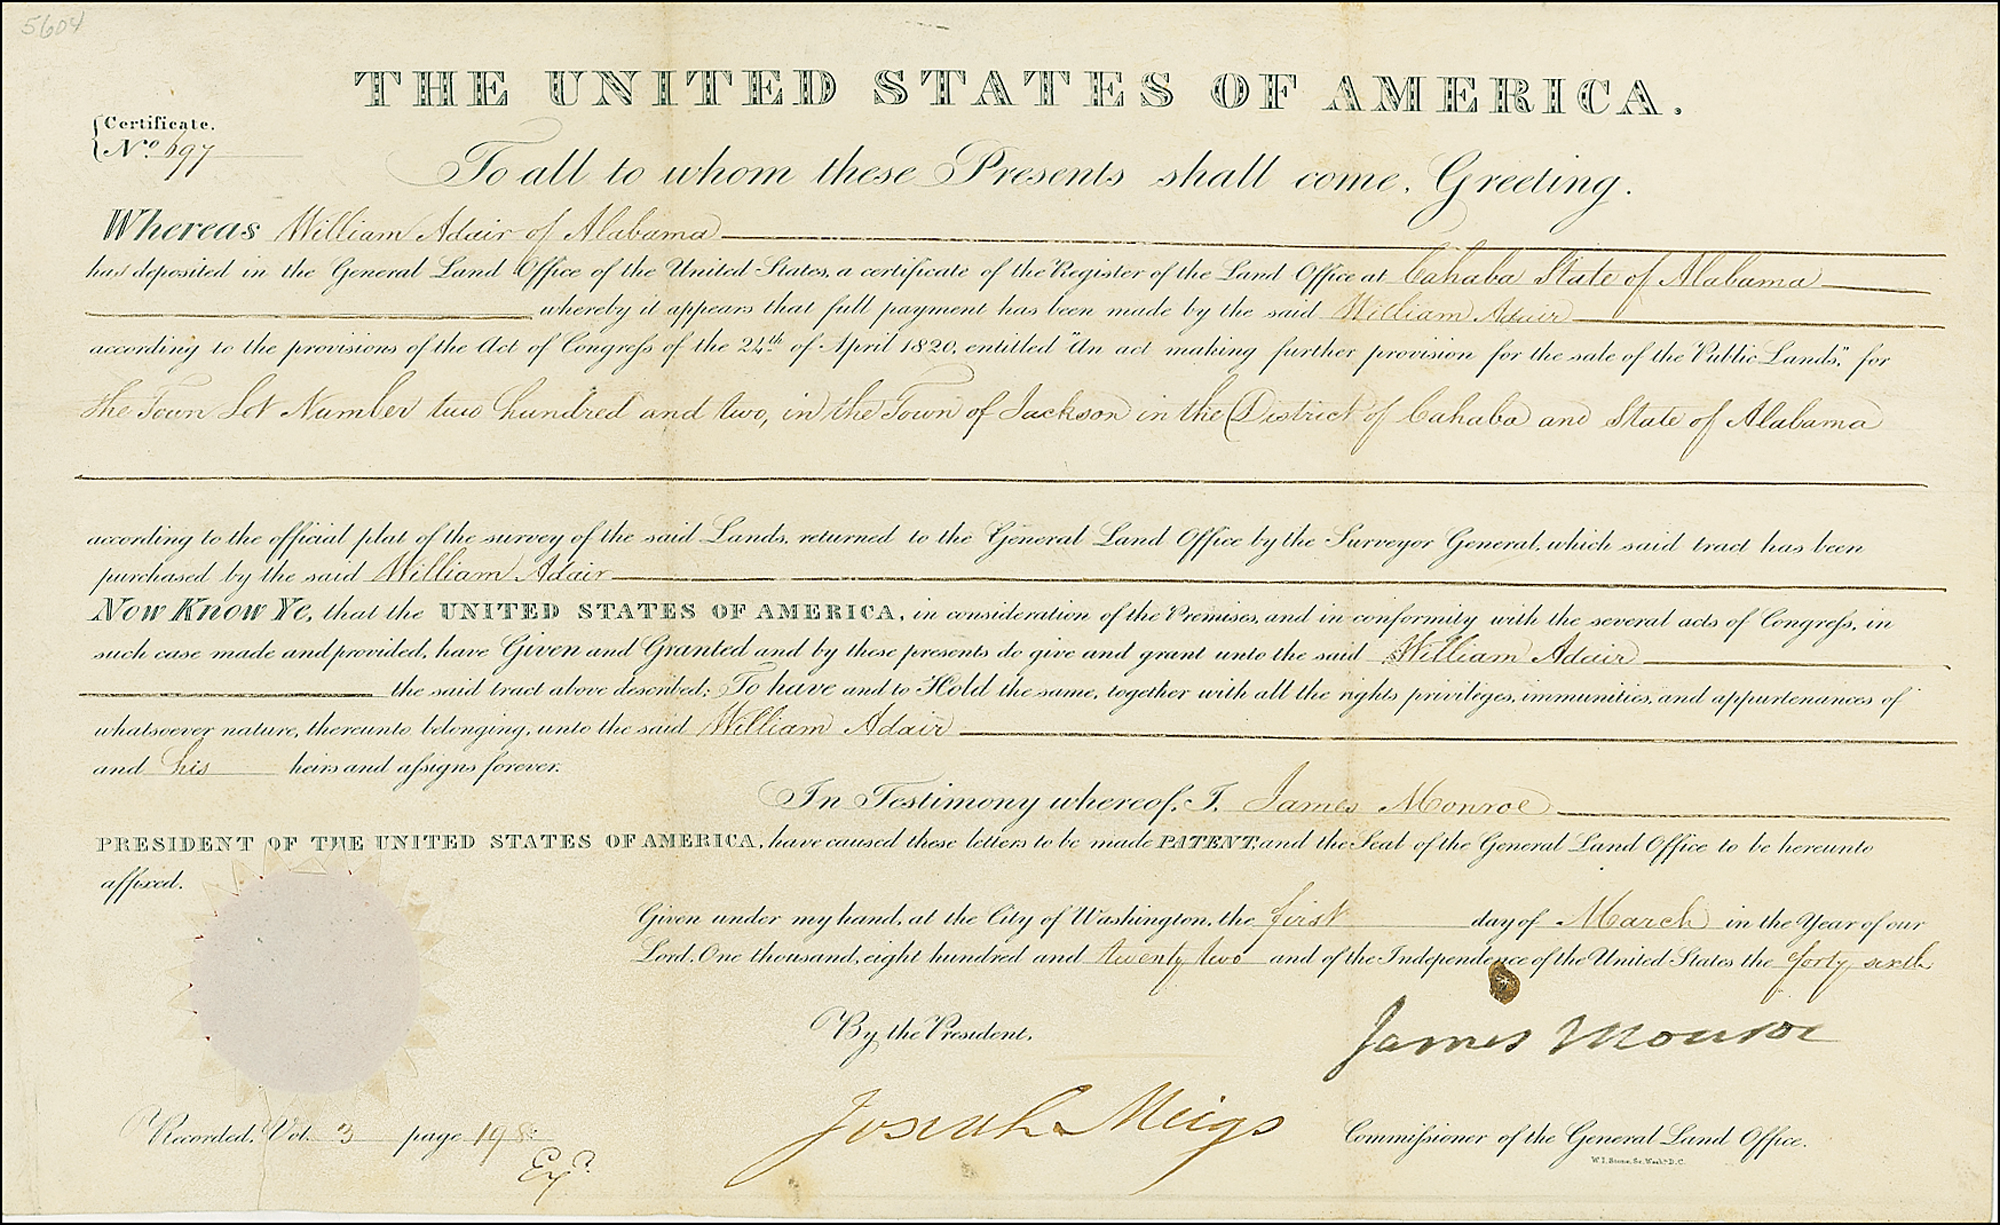 5604
THE UNITED STATES OF AMERICA.
Certificate.
No. 697
To all to whom these Presents shall come, Greeting.
Whereas William Adair of Alabama
has deposited in the General Land Office of the United States, a certificate of the Register of the Land Office at Cahaba State of Alabama
whereby it appears that full payment has been made by the said William Adair
according to the provisions of the Act of Congress of the 24th of April 1820, entitled "An act making further provision for the sale of the Public Lands," for
the Town Lot Number two hundred and two, in the Town of Jackson in the District of Cahaba and State of Alabama
according to the official plat of the survey of the said Lands, returned to the General Land Office by the Surveyor General, which said tract has been
purchased by the said William Adair
Now Know Ye, that the UNITED STATES OF AMERICA, in consideration of the Premises, and in conformity with the several acts of Congress, in
such case made and provided, have Given and Granted and by these presents do give and grant unto the said William Adair
the said tract above described; To have and to Hold the same, together with all the rights privileges, immunities, and appurtenances of
whatsoever nature, thereunto belonging, unto the said William Adair
and his heirs and assigns forever.
In Testimony whereof, I, James Monroe
PRESIDENT OF THE UNITED STATES OF AMERICA, have caused these letters to be made PATENT, and the Seal of the General Land Office to be hereunto
affixed.
Given under my hand, at the City of Washington, the first day of March in the Year of our
Lord, One thousand, eight hundred and twenty two and of the Independence of the United States the forty sixth
By the President,
James Monroe
Josiah Meigs Commissioner of the General Land Office.
W.I. Stone, Sc. Washn. D.C.
Recorded, Vol. 3 page 198